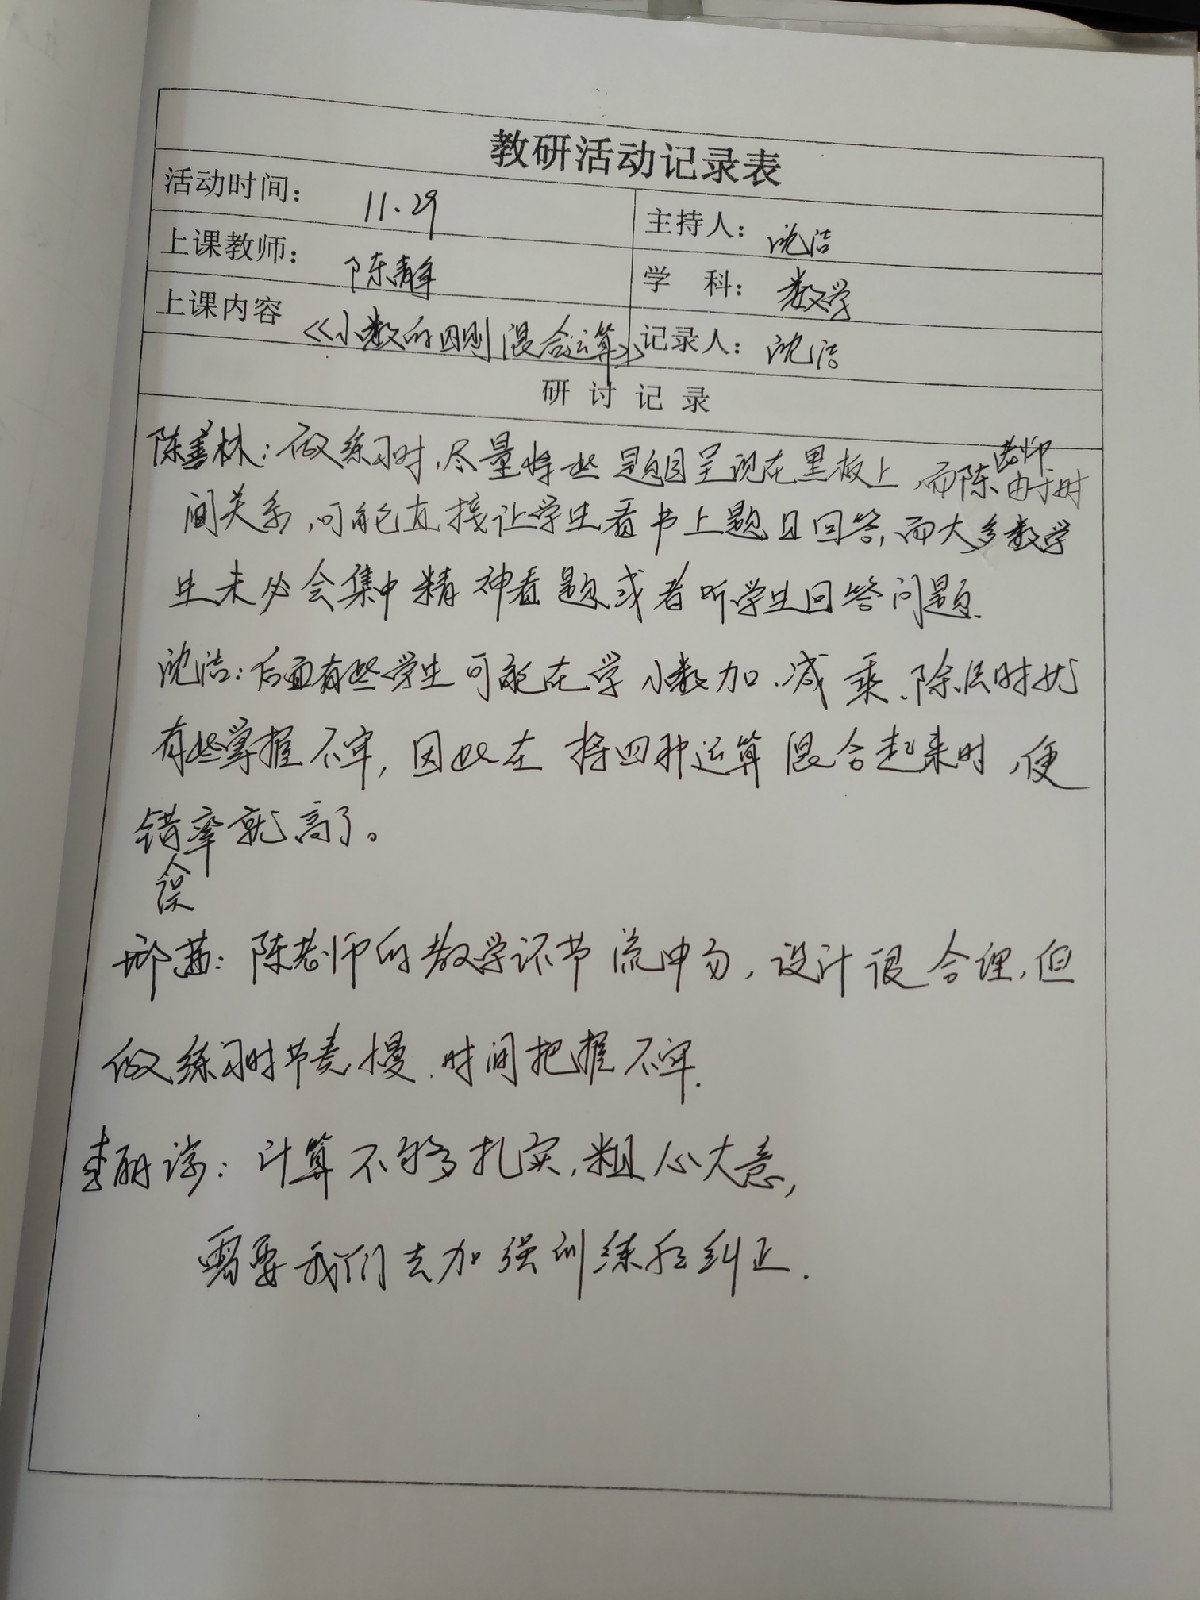 教研活动记录表
活动时间： 11.29
主持人： 沈洁
上课教师： 陈静
学 科： 数学
上课内容 《小数的四则混合运算》
记录人： 沈洁
研 讨 记 录
陈善林：做练习时，尽量将些题目呈现在黑板上，而陈老师由于时
间关系，可能直接让学生看书上题目回答，而大多数学
生未必会集中精神看题或者听学生回答问题.
沈洁：后面有些学生可能在学小数加、减 乘、除法时就
有些掌握不牢，因此在将四种运算混合起来时，便
错误率就高了。
陈老师的教学环节流畅，设计很合理，但
做练习时节奏慢、时间把握不牢.
计算不够扎实，粗心大意，
需要我们去加强训练和纠正.